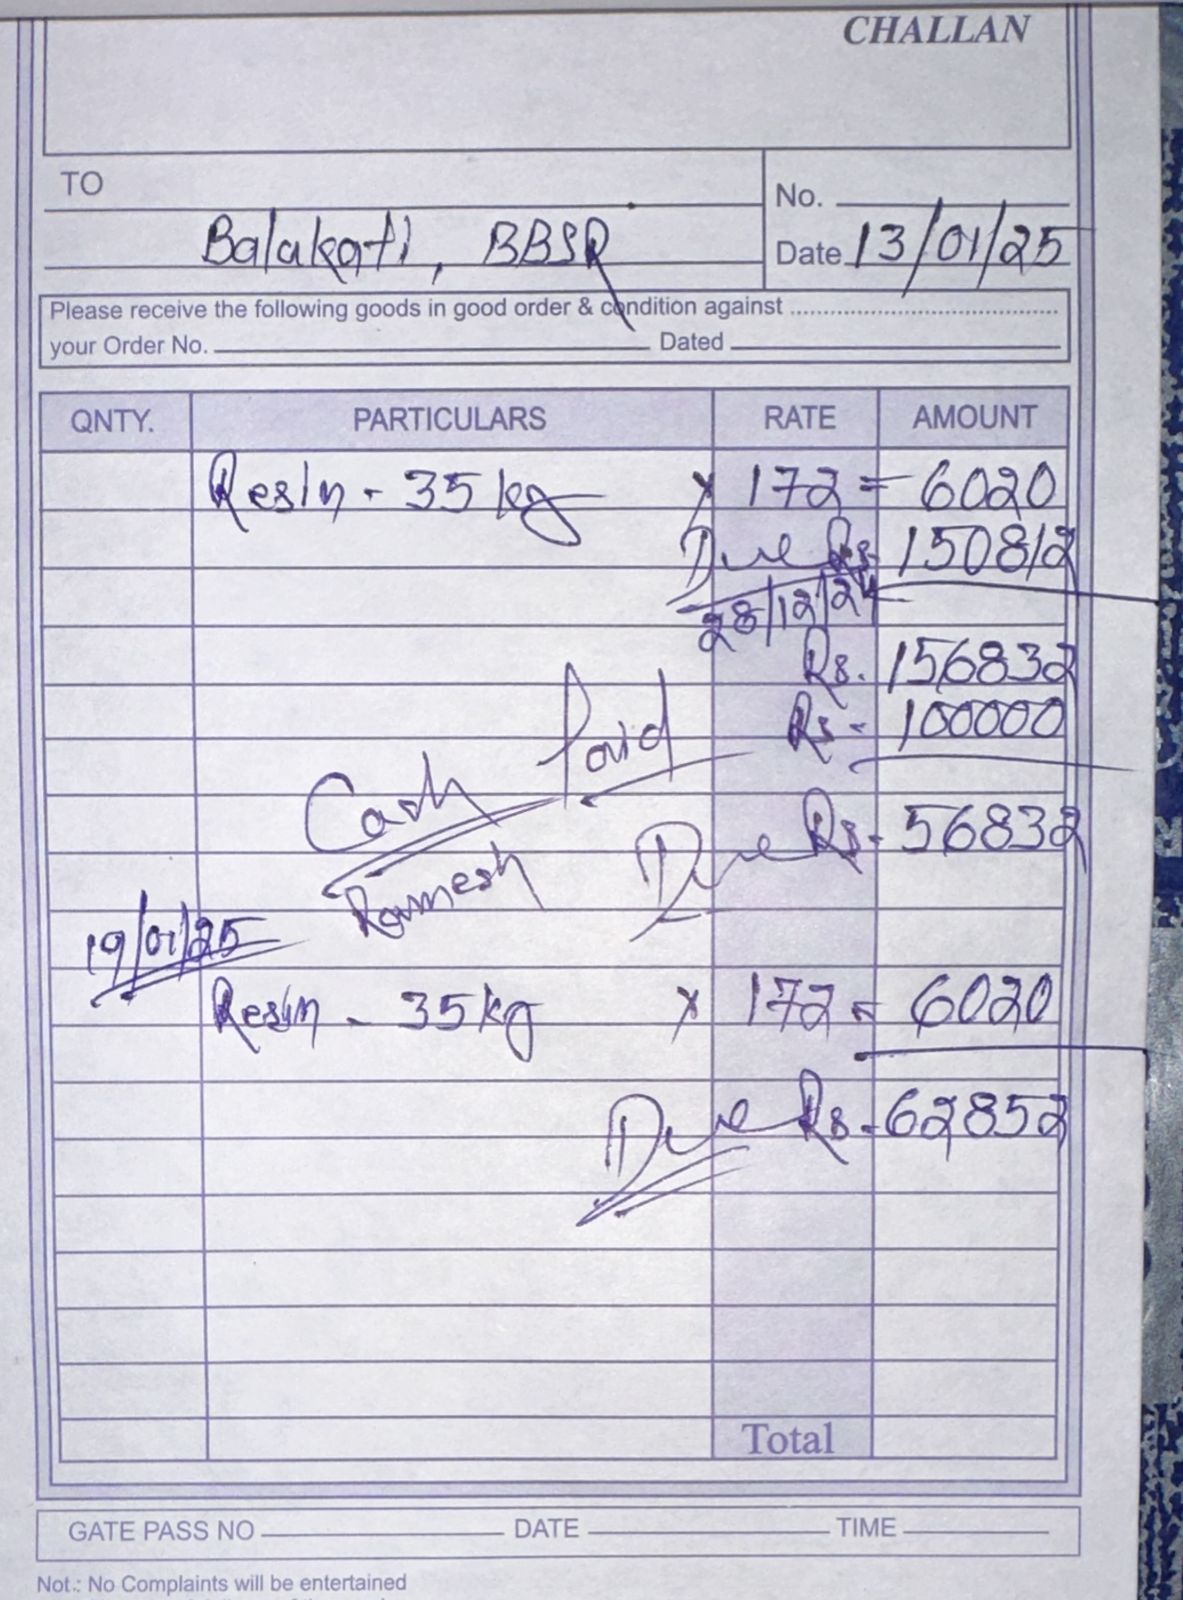 CHALLAN
TO
No.
Balakati, BBSR
Date 13/01/25
Please receive the following goods in good order & condition against
your Order No. Dated
QNTY. PARTICULARS RATE AMOUNT
Resin - 35 kg x 172 = 6020
Due Rs. 150812
28/12/24
Rs. 156832
Paid Rs - 100000
Cash
Due Rs. 56832
Ramesh
19/01/25
Resin - 35 kg x 172 = 6020
Due Rs. 62852
Total
GATE PASS NO DATE TIME
Not.: No Complaints will be entertained